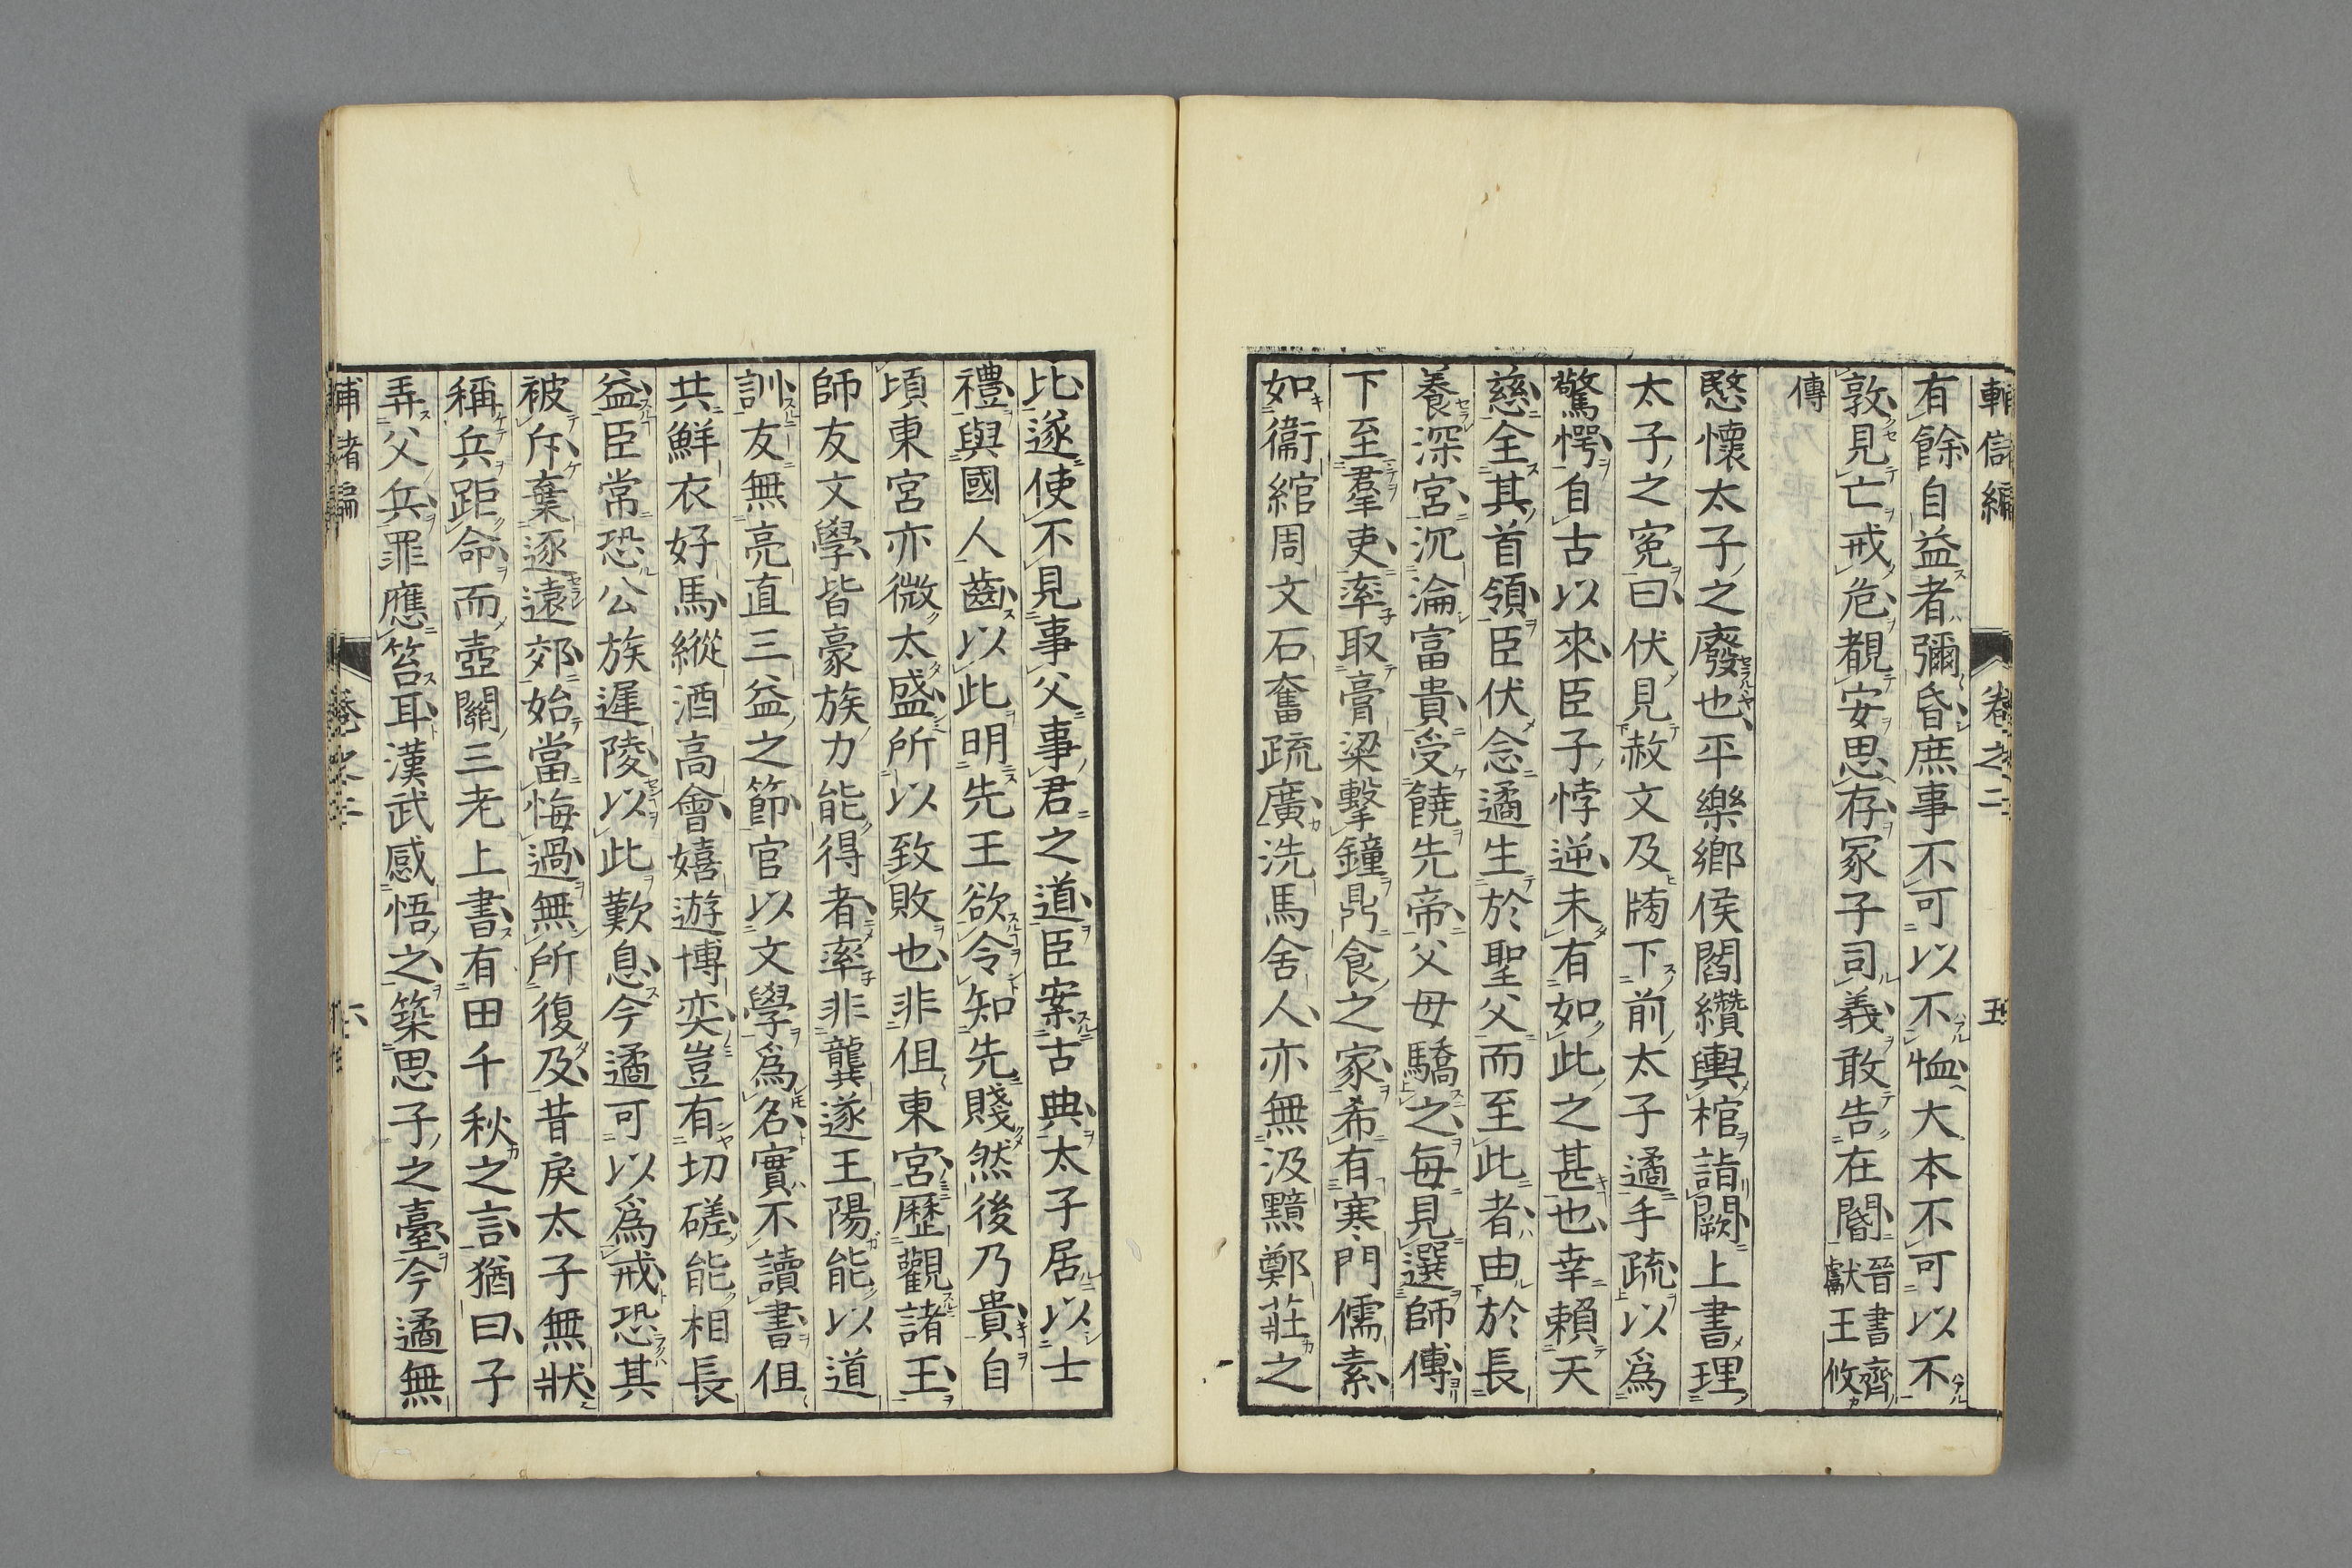 輔儲編 卷之二 五
有餘自益者彌昏庶事不可以不恤大本不可以不
敦見亡戒危覩安思存冢子司義敢告在閽晉書齊獻王攸
傳
愍懷太子之廢也平樂鄉侯閻纘輿棺詣闕上書理
太子之寃曰伏見赦文及牓下前太子遹手疏以爲
驚愕自古以來臣子悖逆未有如此之甚也幸賴天
慈全其首領臣伏念遹生於聖父而至此者由於長
養深宮沉淪富貴受饒先帝父母驕之每見選師傅
下至羣吏率取膏粱擊鐘鼎食之家希有寒門儒素
如衞綰周文石奮疏廣洗馬舍人亦無汲黯鄭莊之
比遂使不見事父事君之道臣案古典太子居以士
禮與國人齒以此明先王欲令知先賤然後乃貴自
頃東宮亦微太盛所以致敗也非但東宮歷觀諸王
師友文學皆豪族力能得者率非龔遂王陽能以道
訓友無亮直三益之節官以文學爲名實不讀書但
共鮮衣好馬縱酒高會嬉遊博奕豈有切磋能相長
益臣常恐公族遲陵以此歎息今遹可以爲戒恐其
被斥棄逐遠郊始當悔過無所復及昔戾太子無狀
稱兵距命而壺關三老上書有田千秋之言猶曰子
弄父兵罪應笞耳漢武感悟之築思子之臺今遹無
輔儲編 卷之二 六